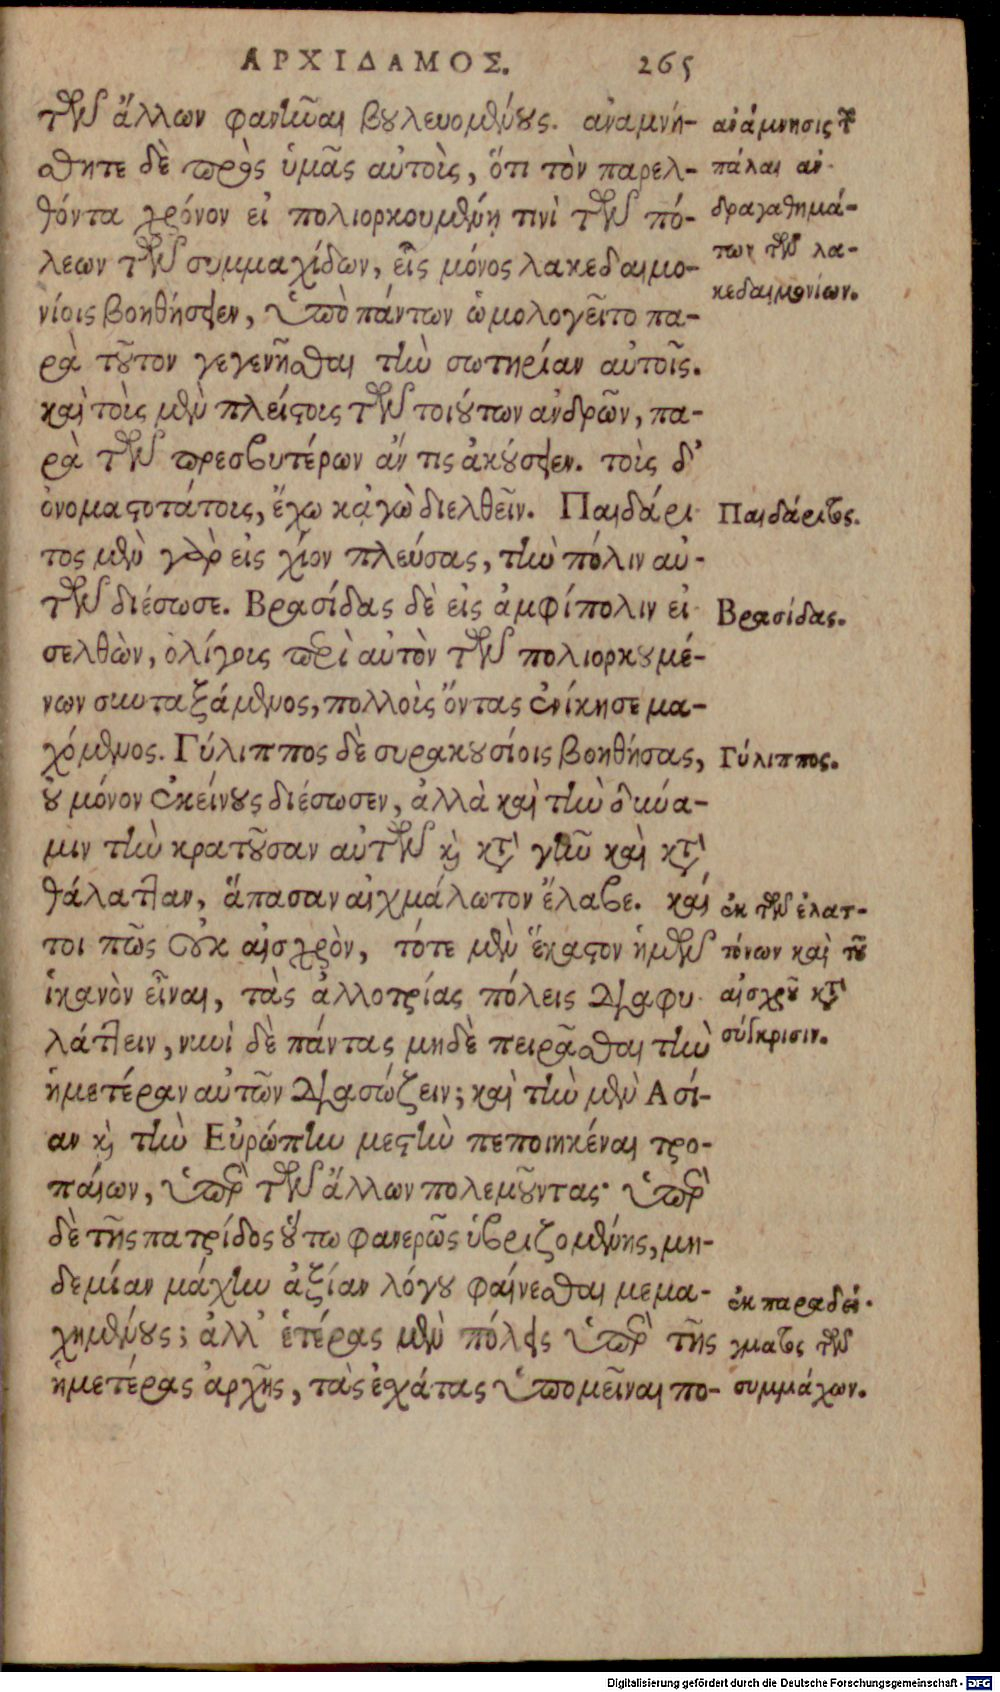 ΑΡΧΙΔΑΜΟΣ. 265
τῶν ἄλλων φανῶναι βουλευομένους. ἀναμνή-
σθητε δὲ πρὸς ὑμᾶς αὐτοὺς, ὅτι τὸν παρελ-
θόντα χρόνον εἰ πολιορκουμένῃ τινὶ τῶν πό-
λεων τῶν συμμαχίδων, εἷς μόνος λακεδαιμο-
νίοις βοηθήσειεν, ὑπὸ πάντων ὡμολογεῖτο πα-
ρὰ τοῦτον γεγενῆσθαι τὴν σωτηρίαν αὐτοῖς.
καὶ τοὺς μὲν πλείστους τῶν τοιούτων ἀνδρῶν, πα-
ρὰ τῶν πρεσβυτέρων ἄν τις ἀκούσειεν. τοὺς δ'
ὀνομαστοτάτους, ἔχω κἀγὼ διελθεῖν. Παιδάρι
τος μὲν γὰρ εἰς χίον πλεύσας, τὴν πόλιν αὐ-
τῶν διέσωσε. Βρασίδας δὲ εἰς ἀμφίπολιν εἰ
σελθὼν, ὀλίγους περὶ αὑτὸν τῶν πολιορκουμέ-
νων συνταξάμενος, πολλοὺς ὄντας ἐνίκησε μα-
χόμενος. Γύλιππος δὲ συρακουσίοις βοηθήσας,
οὐ μόνον ἐκείνους διέσωσεν, ἀλλὰ καὶ τὴν δύνα-
μιν τὴν κρατοῦσαν αὐτῶν καὶ κατὰ γῆν καὶ κατὰ
θάλατταν, ἅπασαν αἰχμάλωτον ἔλαβε. καί
τοι πῶς οὐκ αἰσχρὸν, τότε μὲν ἕκαστον ἡμῶν
ἱκανὸν εἶναι, τὰς ἀλλοτρίας πόλεις διαφυ
λάττειν, νυνὶ δὲ πάντας μηδὲ πειρᾶσθαι τὴν
ἡμετέραν αὐτῶν διασώζειν; καὶ τὴν μὲν Ασί-
αν καὶ τὴν Εὐρώπην μεστὴν πεποιηκέναι τρο-
παίων, ὑπὲρ τῶν ἄλλων πολεμοῦντας· ὑπὲρ
δὲ τῆς πατρίδος οὕτω φανερῶς ὑβριζομένης, μη-
δεμίαν μάχην ἀξίαν λόγου φαίνεσθαι μεμα-
χημένους; ἀλλ' ἑτέρας μὲν πόλεις ὑπὲρ τῆς
ἡμετέρας ἀρχῆς, τὰς ἐσχάτας ὑπομεῖναι πο-
ἀνάμνησις τῶν
πάλαι ἀν-
δραγαθημά-
των τῶν λα-
κεδαιμονίων.
Παιδάριτος.
Βρασίδας.
Γύλιππος.
ἐκ τῶν ἐλατ-
τόνων καὶ τοῦ
αἰσχροῦ κατὰ
σύγκρισιν.
ἐκ παραδεί-
γματος τῶν
συμμάχων.
Digitalisierung gefördert durch die Deutsche Forschungsgemeinschaft - DFG